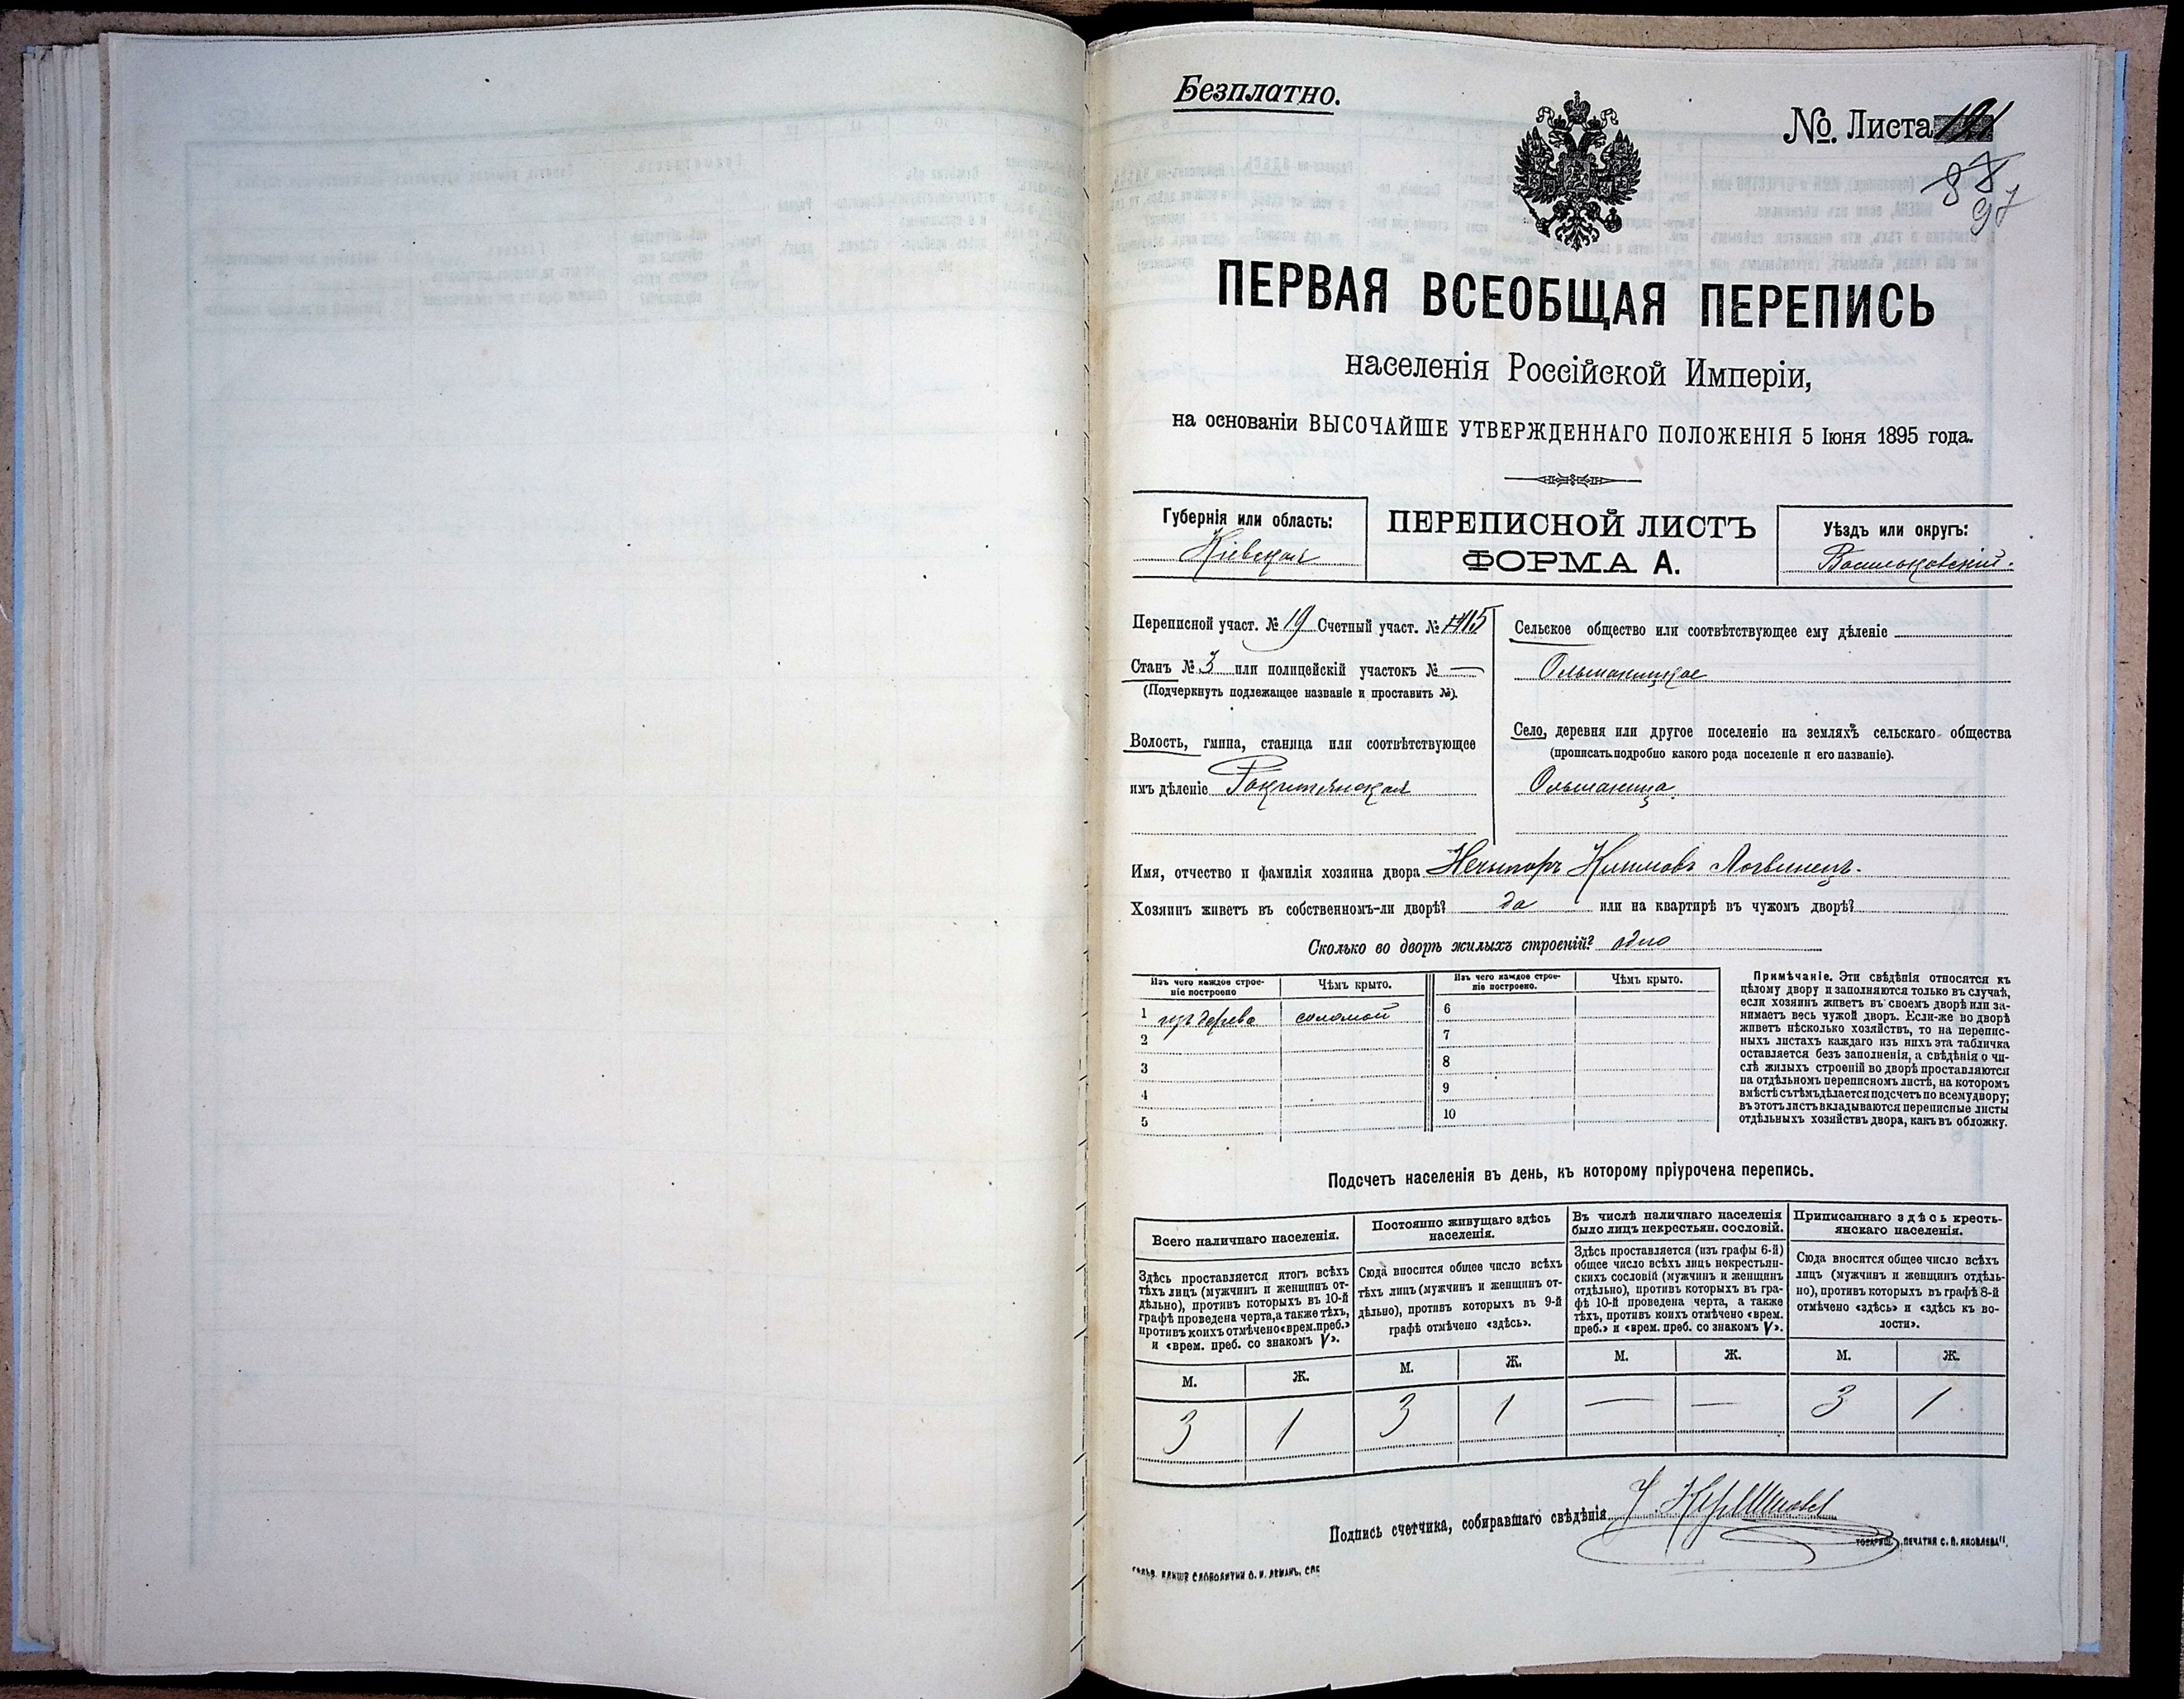 Безплатно.
№. Листа
97
ПЕРВАЯ ВСЕОБЩАЯ ПЕРЕПИСЬ
населенія Россійской Имперіи,
на основаніи ВЫСОЧАЙШЕ УТВЕРЖДЕННАГО ПОЛОЖЕНІЯ 5 Іюня 1895 года.
Губернія или область:
Кіевская
ПЕРЕПИСНОЙ ЛИСТЪ
ФОРМА А.
Уѣздъ или округъ:
Васильковскій.
Переписной участ. № 19 Счетный участ. № 15
Станъ № 3 или полицейскій участокъ № —
(Подчеркнуть подлежащее названіе и проставить №).
Волость, гмина, станица или соотвѣтствующее
имъ дѣленіе Ракитянская
Сельское общество или соотвѣтствующее ему дѣленіе
Ольшаницкое
Село, деревня или другое поселеніе на земляхъ сельскаго общества
(прописать подробно какого рода поселеніе и его названіе).
Ольшаница
Имя, отчество и фамилія хозяина двора Нечипоръ Климовъ Логвинецъ.
Хозяинъ живетъ въ собственномъ-ли дворѣ? да или на квартирѣ въ чужомъ дворѣ?
Сколько во дворѣ жилыхъ строеній? одно
Изъ чего каждое строе-
ніе построено
Чѣмъ крыто.
Изъ чего каждое строе-
ніе построено.
Чѣмъ крыто.
1 изъ дерева соломой
2
3
4
5
6
7
8
9
10
Примѣчаніе. Эти свѣдѣнія относятся къ
цѣлому двору и заполняются только въ случаѣ,
если хозяинъ живетъ въ своемъ дворѣ или за-
нимаетъ весь чужой дворъ. Если-же во дворѣ
живетъ нѣсколько хозяйствъ, то на перепис-
ныхъ листахъ каждаго изъ нихъ эта табличка
оставляется безъ заполненія, а свѣдѣнія о чи-
слѣ жилыхъ строеній во дворѣ проставляются
на отдѣльномъ переписномъ листѣ, на которомъ
вмѣстѣ съ тѣмъ дѣлается подсчетъ по всему двору;
въ этотъ листъ вкладываются переписные листы
отдѣльныхъ хозяйствъ двора, какъ въ обложку.
Подсчетъ населенія въ день, къ которому пріурочена перепись.
Всего наличнаго населенія.
Здѣсь проставляется итогъ всѣхъ
тѣхъ лицъ (мужчинъ и женщинъ от-
дѣльно), противъ которыхъ въ 10-й
графѣ проведена черта, а также тѣхъ,
противъ коихъ отмѣчено «врем. преб.»
и «врем. преб. со знакомъ V».
М. Ж.
3 1
Постоянно живущаго здѣсь
населенія.
Сюда вносится общее число всѣхъ
тѣхъ лицъ (мужчинъ и женщинъ от-
дѣльно), противъ которыхъ въ 9-й
графѣ отмѣчено «здѣсь».
М. Ж.
3 1
Въ числѣ наличнаго населенія
было лицъ некрестьян. сословій.
Здѣсь проставляется (изъ графы 6-й)
общее число всѣхъ лицъ некрестьян-
скихъ сословій (мужчинъ и женщинъ
отдѣльно), противъ которыхъ въ гра-
фѣ 10-й проведена черта, а также
тѣхъ, противъ коихъ отмѣчено «врем.
преб.» и «врем. преб. со знакомъ V».
М. Ж.
— —
Приписаннаго здѣсь кресть-
янскаго населенія.
Сюда вносится общее число всѣхъ
лицъ (мужчинъ и женщинъ отдѣль-
но), противъ которыхъ въ графѣ 8-й
отмѣчено «здѣсь» и «здѣсь къ во-
лости».
М. Ж.
3 1
Подпись счетчика, собиравшаго свѣдѣнія
ПЕЧАТНЯ С. П. ЯКОВЛЕВА".
СЛОВОЛИТНИ О. И. ЛЕМАНЪ, СПБ